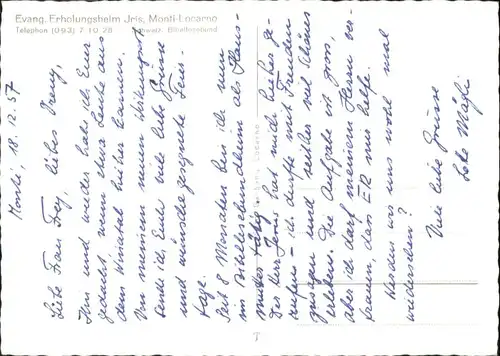 Evang. Erholungsheim Jris, Monti-Locarno
Telephon (093) 7 10 28 Schweiz. Bibellesebund
Monti, 18.12.57
Liebe Frau Frey, liebes Vreny,
Hin und wieder habe ich Euer
gedacht, wenn etwa Leute aus
dem Winatal hieher kamen.
Von meinem neuen Wirkungsort
sende ich Euch viele liebe Grüsse
und wünsche gesegnete Fest-
tage.
Seit 8 Monaten bin ich nun
im Bibellesebundheim als Haus-
mutter tätig.
Der Herr Jesus hat mich hieher ge-
rufen – ich durfte mit Freuden
zusagen und seither viel Schönes
erleben. Die Aufgabe ist gross,
aber ich darf meinem Herrn ver-
trauen, dass ER mir helfe.
Werden wir uns wohl mal
wiedersehen?
Viele liebe Grüsse
Mägli